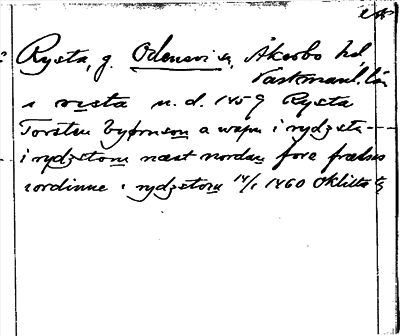 Rysta, g. Odensvi sn, Åkerbo hd,
Västmanl. län
i rista u. d. 1459 Rysta
Torsten byørnson a wapn i rydzsta
i rydzstom næst nordan fore frælses
iordinne i rydzstom 14/1 1460